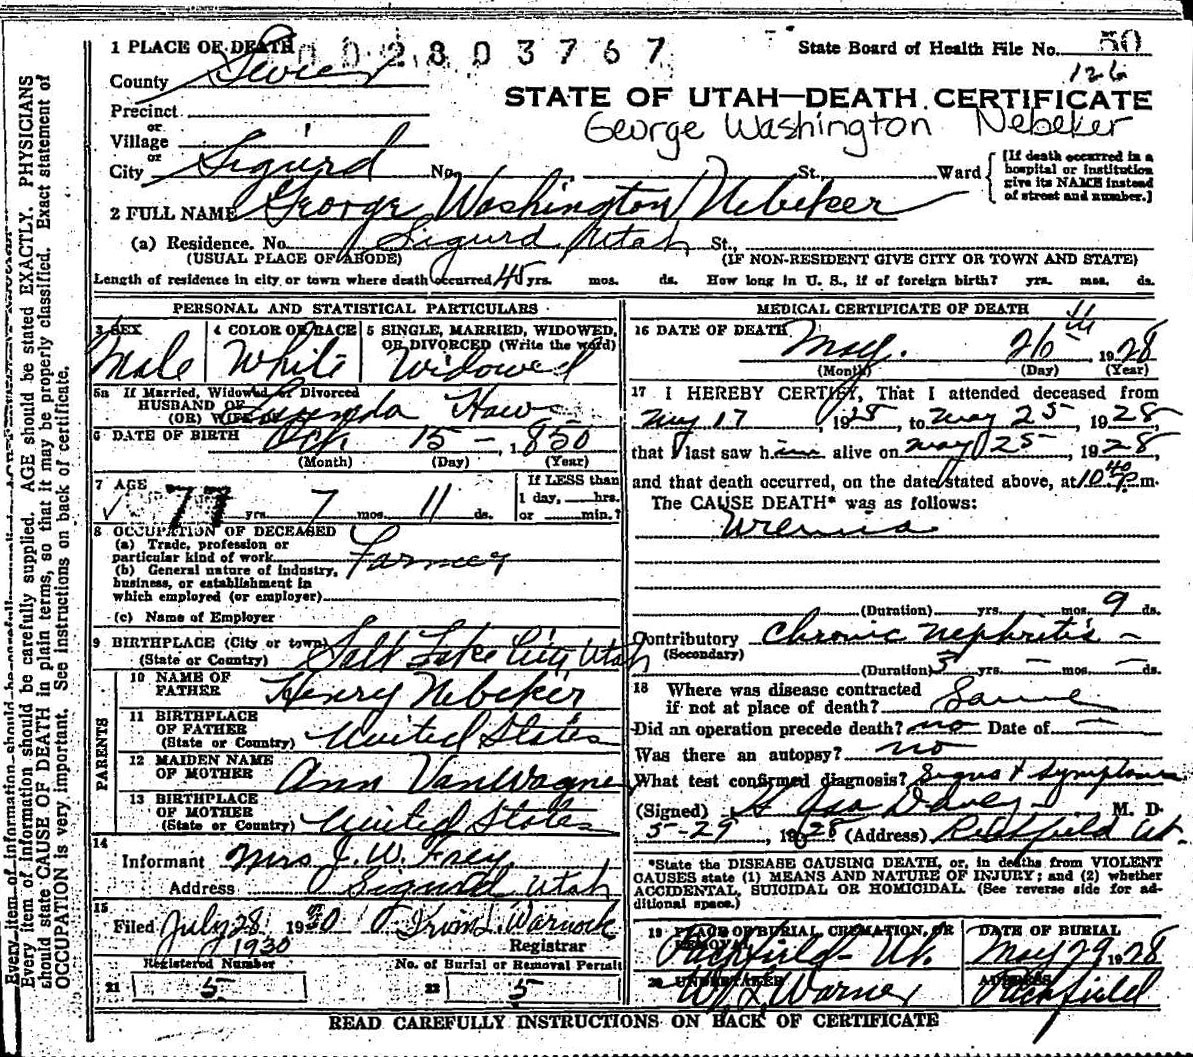 1 PLACE OF DEATH
0 0 2 8 0 3 7 6 7
State Board of Health File No. 50
126
County Sevier
STATE OF UTAH—DEATH CERTIFICATE
Precinct
George Washington Nebeker
or
Village
or
City Sigurd No. St., Ward
[If death occurred in a hospital or institution give its NAME instead of street and number.]
2 FULL NAME George Washington Nebeker
(a) Residence. No. Sigurd Utah St.,
(USUAL PLACE OF ABODE) (IF NON-RESIDENT GIVE CITY OR TOWN AND STATE)
Length of residence in city or town where death occurred 45 yrs. mos. ds. How long in U. S., if of foreign birth? yrs. mos. ds.
PERSONAL AND STATISTICAL PARTICULARS
3 SEX
Male
4 COLOR OR RACE
White
5 SINGLE, MARRIED, WIDOWED,
OR DIVORCED (Write the word)
Widowed
5a If Married, Widowed or Divorced
HUSBAND OF
(OR) WIFE OF
6 DATE OF BIRTH Oct 15 - , 1850
(Month) (Day) (Year)
7 AGE
77 yrs. 7 mos. 11 ds.
If LESS than
1 day, hrs.
or min.?
8 OCCUPATION OF DECEASED
(a) Trade, profession or
particular kind of work Farmer
(b) General nature of industry,
business, or establishment in
which employed (or employer)
(c) Name of Employer
9 BIRTHPLACE (City or town) Salt Lake City Utah
(State or Country)
PARENTS
10 NAME OF
FATHER Henry Nebeker
11 BIRTHPLACE
OF FATHER United States
(State or Country)
12 MAIDEN NAME
OF MOTHER Ann VanWagner
13 BIRTHPLACE
OF MOTHER
(State or Country) United States
14
Informant Mrs J. W. Frey
Address Sigurd Utah
15
Filed July 28 1930 L. Warnock
1930 Registrar
Registered Number No. of Burial or Removal Permit
21 5 22 5
MEDICAL CERTIFICATE OF DEATH
16 DATE OF DEATH May. 26th 1928
(Month) (Day) (Year)
17 I HEREBY CERTIFY, That I attended deceased from
May 17, 1928, to May 25, 1928,
that I last saw him alive on May 25, 1928,
and that death occurred, on the date stated above, at 10 40 P m.
The CAUSE DEATH* was as follows:
Uremia
(Duration) yrs. mos. 9 ds.
Contributory Chronic Nephritis -
(Secondary)
(Duration) 3 yrs. - mos. - ds.
18 Where was disease contracted
if not at place of death? Same
Did an operation precede death? no Date of -
Was there an autopsy? no
What test confirmed diagnosis? Signs & Symptoms
(Signed) M. D.
5-29, 1928 (Address) Richfield Ut.
*State the DISEASE CAUSING DEATH, or, in deaths from VIOLENT
CAUSES state (1) MEANS AND NATURE OF INJURY; and (2) whether
ACCIDENTAL, SUICIDAL OR HOMICIDAL. (See reverse side for additional space.)
19 PLACE OF BURIAL, CREMATION, OR
REMOVAL
Richfield - Ut.
DATE OF BURIAL
May 29 1928
20 UNDERTAKER
W L Warner
ADDRESS
Richfield
READ CAREFULLY INSTRUCTIONS ON BACK OF CERTIFICATE
Every item of information should be carefully supplied. AGE should be stated EXACTLY. PHYSICIANS
should state CAUSE OF DEATH in plain terms, so that it may be properly classified. Exact statement of
OCCUPATION is very important. See instructions on back of certificate.